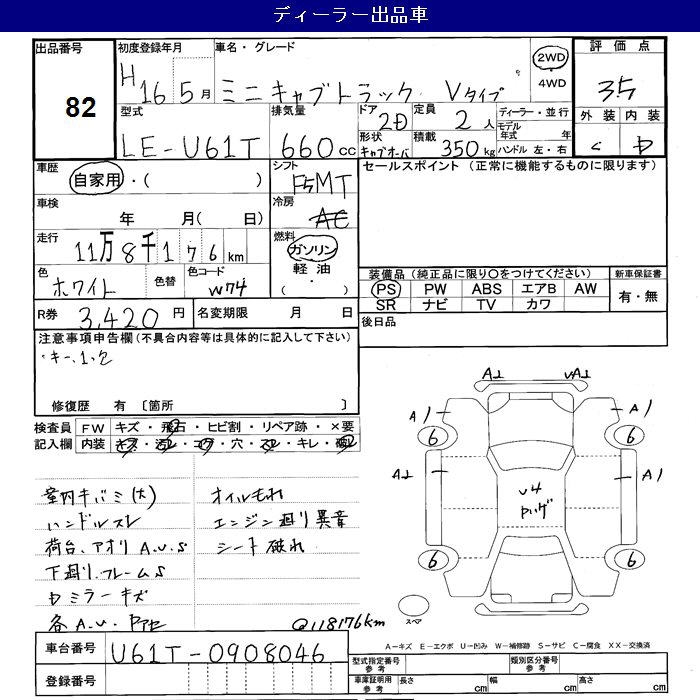 ディーラー出品車
出品番号
82
初度登録年月
H16 5月
車名・グレード
ミニキャブトラック Vタイプ
2WD
・
4WD
評価点
35
外装 内装
C D
型式
LE-U61T
排気量
660cc
ドア
2D
形状
キャブオーバ
定員
2人
積載
350kg
ディーラー・並行
モデル年式 年
ハンドル 左・右
車歴
自家用・( )
シフト
F5MT
車検
年 月( 日)
冷房
AC
走行
11万8千176km
燃料
ガソリン
軽油
( ・ )
色
ホワイト
色替
色コード
W74
R券 3,420円
名変期限 月 日
セールスポイント(正常に機能するものに限ります)
装備品(純正品に限り○をつけてください)
PS PW ABS エアB AW
SR ナビ TV カワ
新車保証書
有・無
後日品
注意事項申告欄(不具合内容等は具体的に記入して下さい)
修復歴 有 〔箇所 〕
検査員記入欄
FW キズ・飛石・ヒビ割・リペア跡・×要
内装 キズ・汚レ・コゲ・穴・スレ・キレ・破レ
室内キバミ(大)
ハンドルスレ
荷台、アオリ A.U.S
下廻り.フレームS
Dミラーキズ
各A.U.
オイルモレ
エンジン廻り異音
シート破れ
@118176km
A1 A1
A1 A1
6 6
A2 A1
U4
6 6
スペア
A-キズ E-エクボ U-凹み W-補修跡 S-サビ C-腐食 XX-交換済
車台番号 U61T-0908046
登録番号
型式指定番号
参考
類別区分番号
参考
車庫証明用
参考
長さ cm 幅 cm 高さ cm